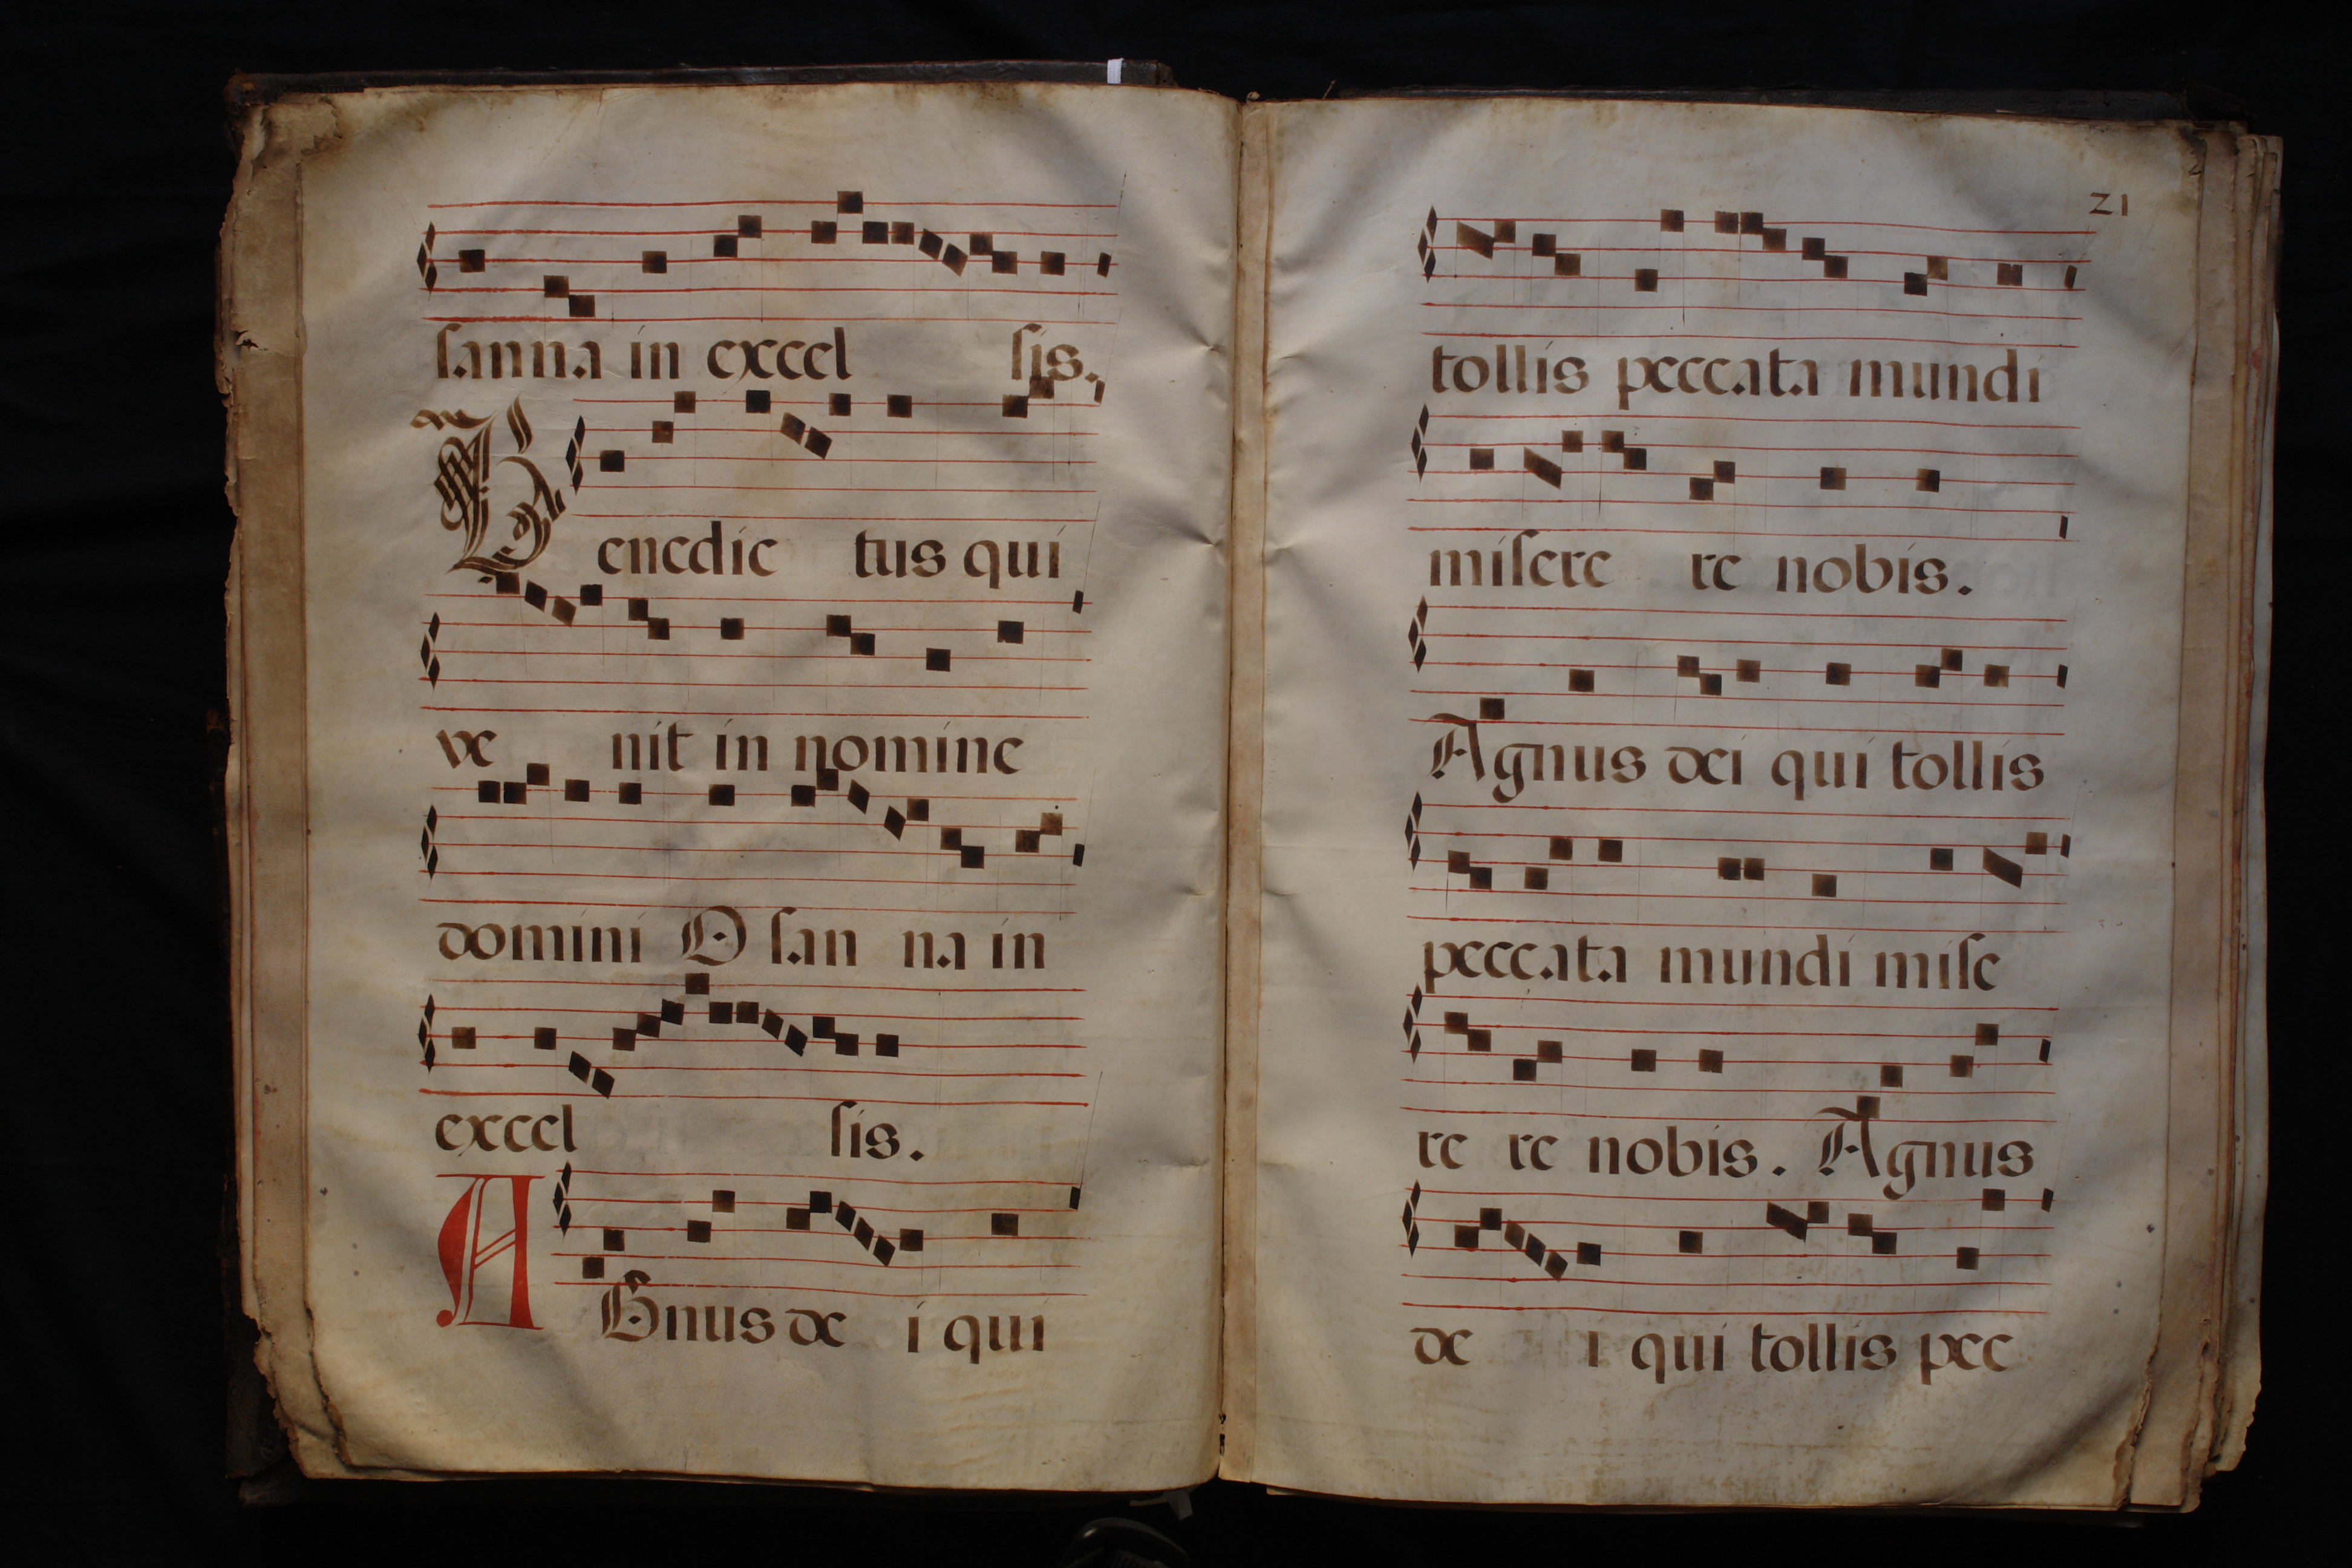 sanna in excel sis.
Benedic tus qui
ve nit in nomine
domini O san na in
excel sis.
AGnus de i qui
21
tollis peccata mundi
misere re nobis.
Agnus dei qui tollis
peccata mundi mise
re re nobis. Agnus
de i qui tollis pec